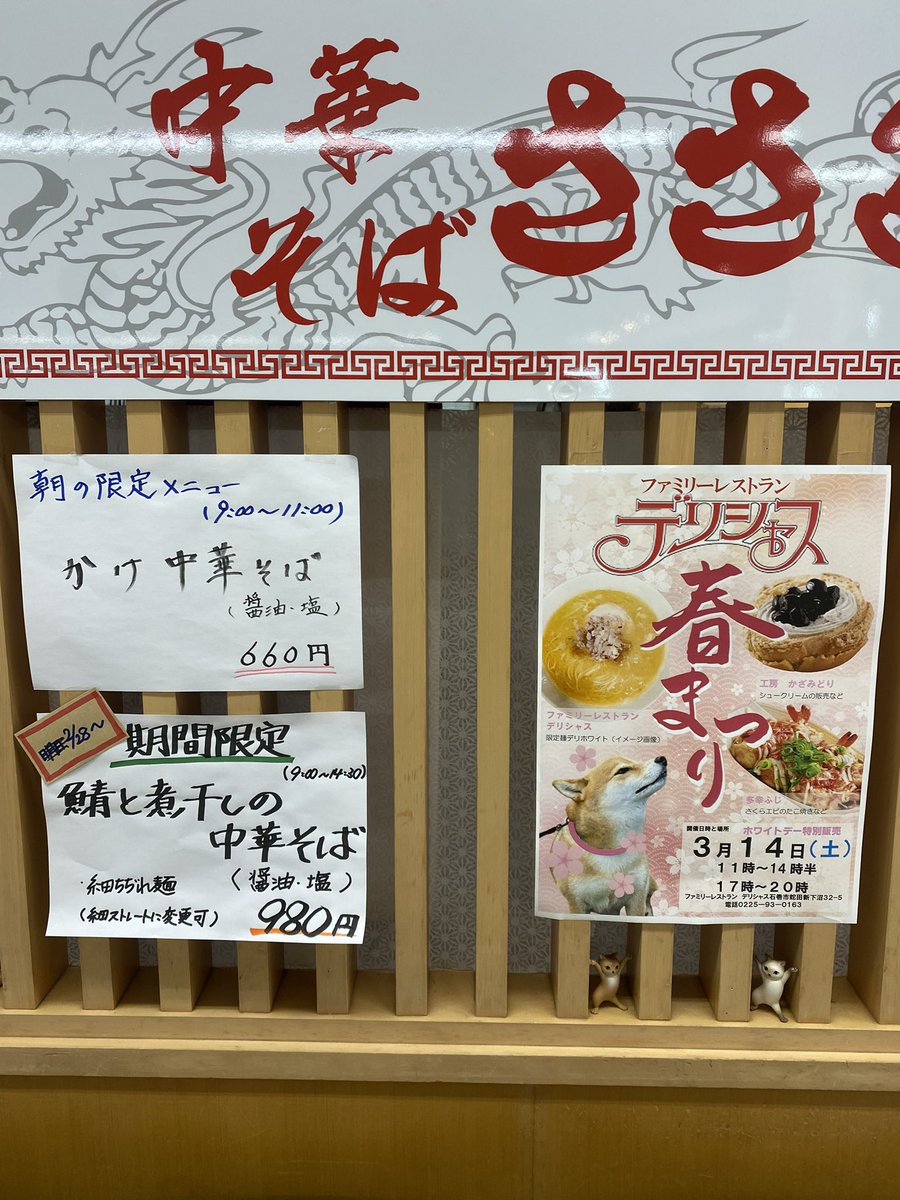 中華
そば
ささ
朝の限定メニュー
(9:00〜11:00)
かけ中華そば
(醤油・塩)
660円
2/28〜
期間限定
(9:00〜14:30)
鯖と煮干しの
中華そば
(醤油・塩)
・細ちぢれ麺
(細ストレートに変更可)
980円
ファミリーレストラン
デリシャス
春まつり
工房 かざみどり
シュークリームの販売など
ファミリーレストラン
デリシャス
限定麺デリホワイト(イメージ画像)
多幸ふじ
さくらエビのたこ焼きなど
開催日時と場所 ホワイトデー特別販売
3月14日(土)
11時〜14時半
17時〜20時
ファミリーレストラン デリシャス石巻市蛇田新下沼32-5
電話0225-93-0163